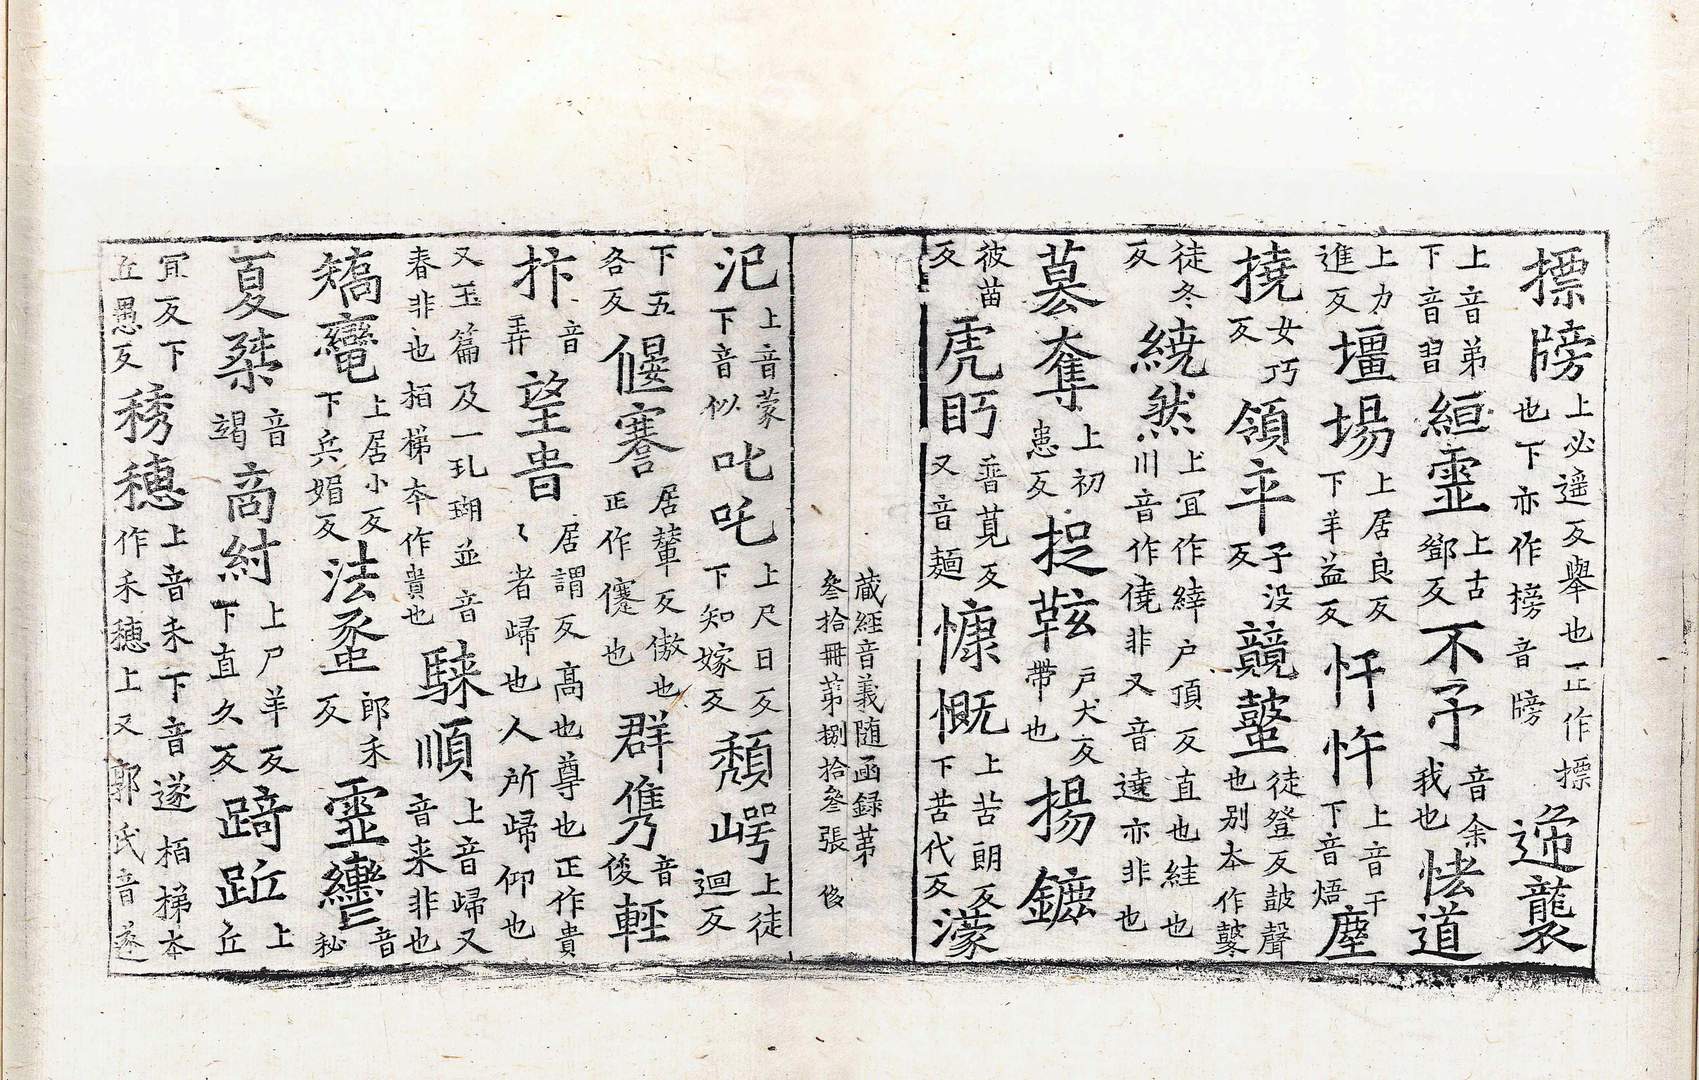 摽牓上必遥反舉也正作摽也下亦作榜音牓遞襲
上音弟下音習絙𤫊上古鄧反不予音余我也恡道
上力進反壃場上居良反下羊益反忓忤上音干下音悟塵
撓女巧反領卒子没反競鼜徒登反鼓聲也别夲作鼟
徒冬反繞然上冝作緈户頂反直也絓也川音作僥非又音遶亦非也
墓奪上初患反捉鞍户犬反帶也揚鑣
彼苗反虎眄音莧反又音麺慷慨上苦朗反下苦代反濛
藏經音義随函録苐
叄拾冊苐捌拾叄張 俻
汜上音蒙下音似叱吒上尺日反下知嫁反頽崿上徒迴反
下五各反偃蹇居輦反傲也正作僆也群儁音俊輕
抃音弄望𡴐居謂反髙也尊也正作貴〻者歸也人所歸仰也
又玉篇及一玌瑚並音春非也栢梯夲作貴也騋順上音歸又音来非也
矯𪓿上居小反下兵媚反法𧐖郎禾反𤫊轡音秘
夏桀音竭商紂上尸羊反下直久反踦䟢上丘
冝反下丘愚反秀穗上音未下音遂栢梯夲作禾穗上又郭氏音遂